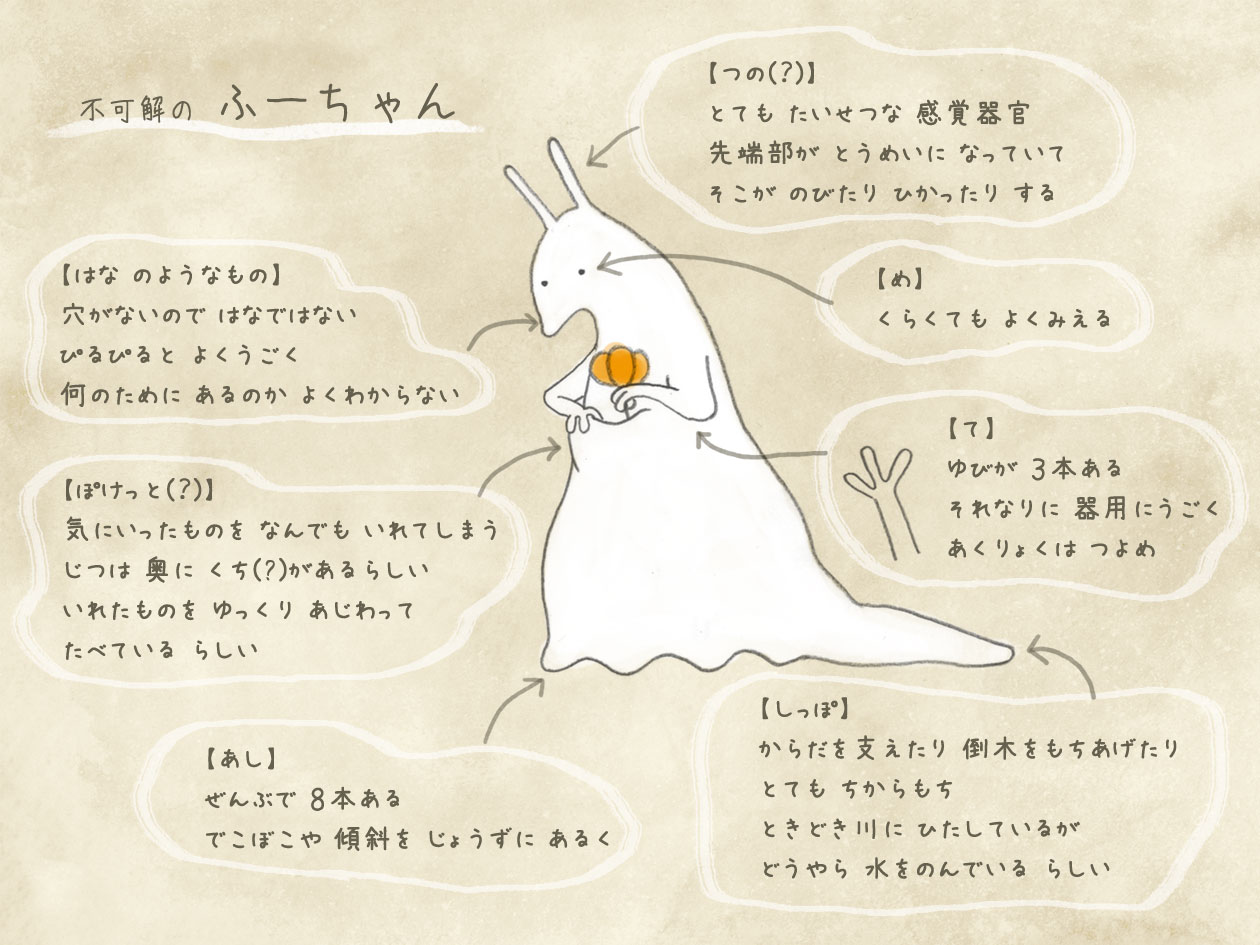 不可解の ふーちゃん
【つの(?)】
とても たいせつな 感覚器官
先端部が とうめいに なっていて
そこが のびたり ひかったり する
【はな のようなもの】
穴がないので はなではない
ぴるぴると よくうごく
何のために あるのか よくわからない
【め】
くらくても よくみえる
【て】
ゆびが 3本ある
それなりに 器用にうごく
あくりょくは つよめ
【ぽけっと(?)】
気にいったものを なんでも いれてしまう
じつは 奥に くち(?)があるらしい
いれたものを ゆっくり あじわって
たべている らしい
【あし】
ぜんぶで 8本ある
でこぼこや 傾斜を じょうずに あるく
【しっぽ】
からだを支えたり 倒木をもちあげたり
とても ちからもち
ときどき川に ひたしているが
どうやら 水をのんでいる らしい